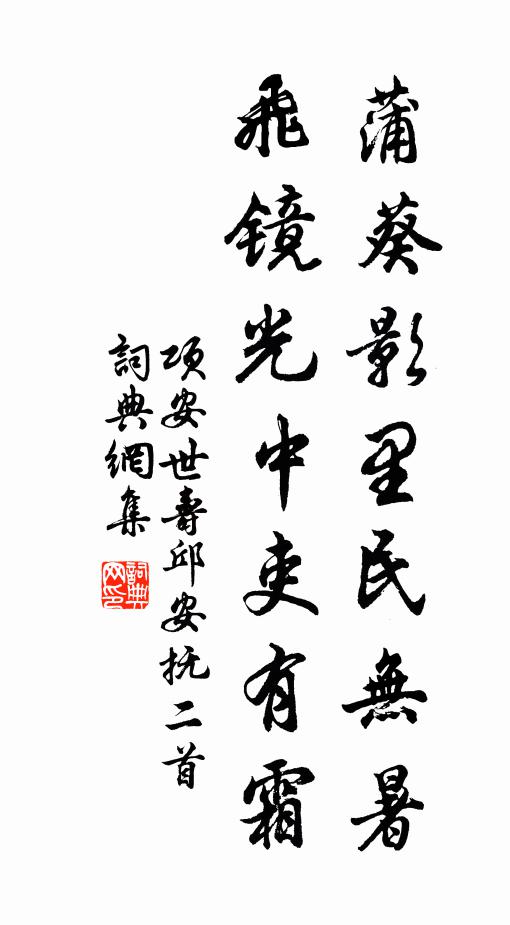 蒲葵影里民無暑
飛镜光中吏有霜
項安世壽邱安抚二首
詞典網集
詞典網印